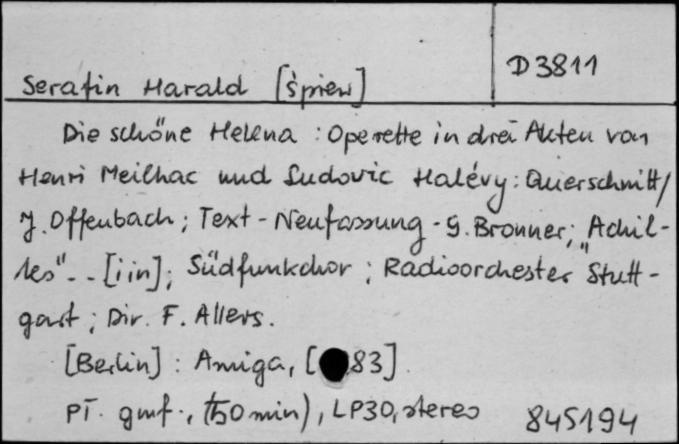 D 3811
Serafin Harald [śpiew]
Die schöne Helena : Operette in drei Akten von
Henri Meilhac und Ludovic Halévy : Querschnitt /
J. Offenbach ; Text - Neufassung - G. Bronner ; "Achil-
les" .. [i in] ; Südfunkchor ; Radioorchester Stutt-
gart ; Dir. F. Allers.
[Berlin] : Amiga, [83].
Pł. gmf., (50 min), LP30, stereo 845194